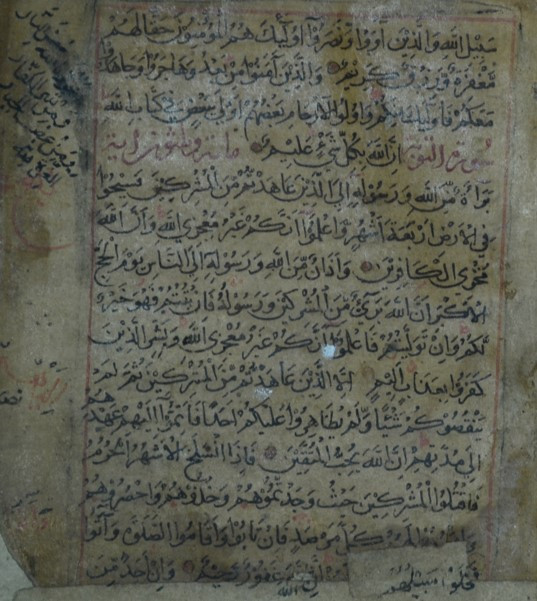 سبيل الله والذين آووا ونصروا اولئك هم المؤمنون حقا لهم
مغفرة ورزق كريم والذين آمنوا من بعد وهاجروا وجاهدوا
معكم فاولئك منكم واولوا الارحام بعضهم اولى ببعض في كتاب الله
ان الله بكل شئ عليم سورة التوبة مائة وثلثون اية
براءة من الله ورسوله الى الذين عاهدتم من المشركين فسيحوا
في الارض اربعة اشهر واعلموا انكم غير معجزي الله وان الله
مخزي الكافرين واذان من الله ورسوله الى الناس يوم الحج
الاكبر ان الله برئ من المشركين ورسوله فان تبتم فهو خير
لكم وان توليتم فاعلموا انكم غير معجزي الله وبشر الذين
كفروا بعذاب اليم الا الذين عاهدتم من المشركين ثم لم
ينقصوكم شيئا ولم يظاهروا عليكم احدا فاتموا اليهم عهدهم
الى مدتهم ان الله يحب المتقين فاذا انسلخ الاشهر الحرم
فاقتلوا المشركين حيث وجدتموهم وخذوهم واحصروهم
كل مرصد فان تابوا واقاموا الصلوة وآتوا
فخلوا سبيلهم ان الله غفور رحيم وان احد من